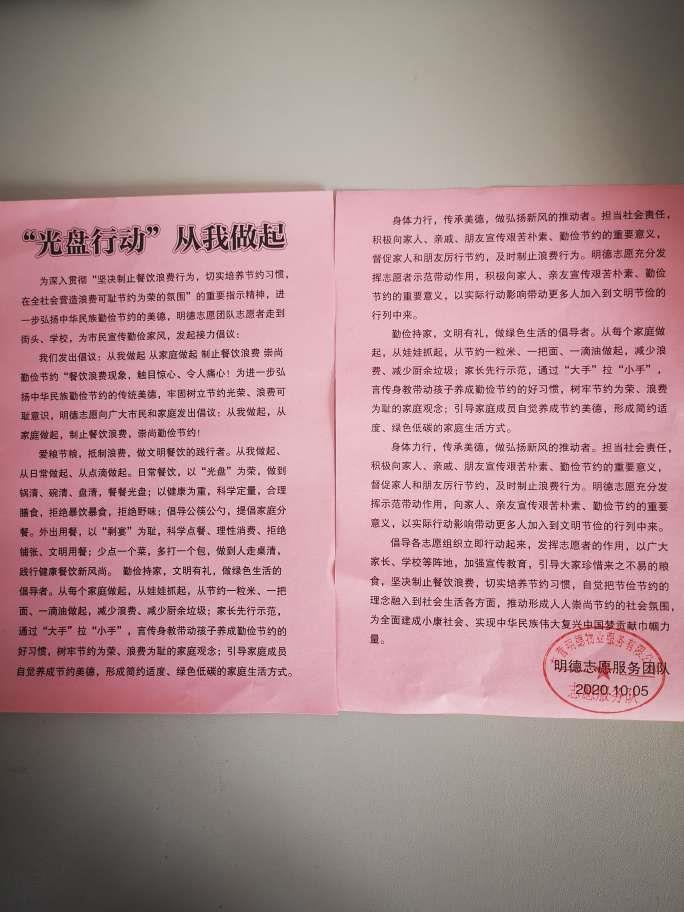 “光盘行动”从我做起
为深入贯彻“坚决制止餐饮浪费行为，切实培养节约习惯，
在全社会营造浪费可耻节约为荣的氛围”的重要指示精神，进
一步弘扬中华民族勤俭节约的美德，明德志愿团队志愿者走到
街头、学校，为市民宣传勤俭家风，发起接力倡议：
我们发出倡议：从我做起 从家庭做起 制止餐饮浪费 崇尚
勤俭节约“餐饮浪费现象，触目惊心、令人痛心！为进一步弘
扬中华民族勤俭节约的传统美德，牢固树立节约光荣、浪费可
耻意识，明德志愿向广大市民和家庭发出倡议：从我做起，从
家庭做起，制止餐饮浪费，崇尚勤俭节约！
爱粮节粮，抵制浪费，做文明餐饮的践行者。从我做起、
从日常做起、从点滴做起。日常餐饮，以“光盘”为荣，做到
锅清、碗清、盘清，餐餐光盘；以健康为重，科学定量，合理
膳食，拒绝暴饮暴食，拒绝野味；倡导公筷公勺，提倡家庭分
餐。外出用餐，以“剩宴”为耻，科学点餐、理性消费、拒绝
铺张、文明用餐；少点一个菜，多打一个包，做到人走桌清，
践行健康餐饮新风尚。 勤俭持家，文明有礼，做绿色生活的
倡导者。从每个家庭做起，从娃娃抓起，从节约一粒米、一把
面、一滴油做起，减少浪费、减少厨余垃圾；家长先行示范，
通过“大手”拉“小手”，言传身教带动孩子养成勤俭节约的
好习惯，树牢节约为荣、浪费为耻的家庭观念；引导家庭成员
自觉养成节约美德，形成简约适度、绿色低碳的家庭生活方式。
身体力行，传承美德，做弘扬新风的推动者。担当社会责任，
积极向家人、亲戚、朋友宣传艰苦朴素、勤俭节约的重要意义，
督促家人和朋友厉行节约，及时制止浪费行为。明德志愿充分发
挥志愿者示范带动作用，积极向家人、亲友宣传艰苦朴素、勤俭
节约的重要意义，以实际行动影响带动更多人加入到文明节俭的
行列中来。
勤俭持家，文明有礼，做绿色生活的倡导者。从每个家庭做
起，从娃娃抓起，从节约一粒米、一把面、一滴油做起，减少浪
费、减少厨余垃圾；家长先行示范，通过“大手”拉“小手”，
言传身教带动孩子养成勤俭节约的好习惯，树牢节约为荣、浪费
为耻的家庭观念；引导家庭成员自觉养成节约美德，形成简约适
度、绿色低碳的家庭生活方式。
身体力行，传承美德，做弘扬新风的推动者。担当社会责任，
积极向家人、亲戚、朋友宣传艰苦朴素、勤俭节约的重要意义，
督促家人和朋友厉行节约，及时制止浪费行为。明德志愿充分发
挥示范带动作用，向家人、亲友宣传艰苦朴素、勤俭节约的重要
意义，以实际行动影响带动更多人加入到文明节俭的行列中来。
倡导各志愿组织立即行动起来，发挥志愿者的作用，以广大
家长、学校等阵地，加强宣传教育，引导大家珍惜来之不易的粮
食，坚决制止餐饮浪费，切实培养节约习惯，自觉把节俭节约的
理念融入到社会生活各方面，推动形成人人崇尚节约的社会氛围，
为全面建成小康社会、实现中华民族伟大复兴中国梦贡献巾帼力
量。
明德志愿服务团队
2020.10.05
明德物业服务有限公
志愿服务队